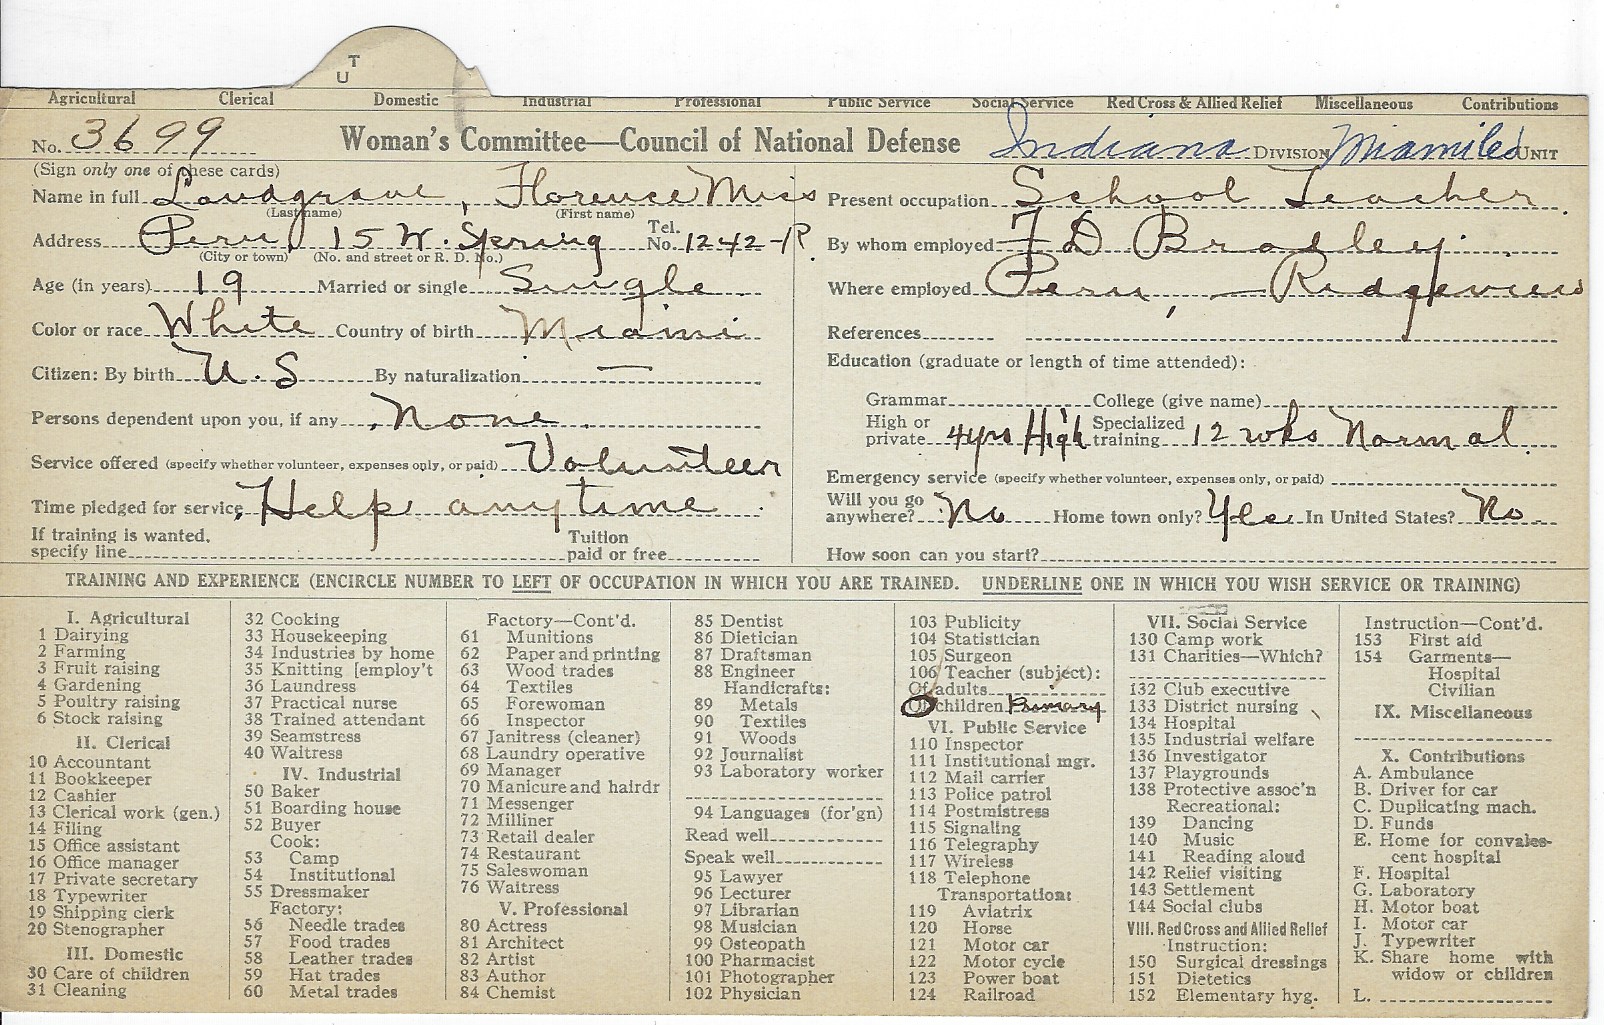 T
U
Agricultural Clerical Domestic Industrial Professional Public Service Social Service Red Cross & Allied Relief Miscellaneous Contributions
No. 3699 Woman's Committee—Council of National Defense Indiana DIVISION Miami UNIT
(Sign only one of these cards)
Name in full Landgrave, Florence Miss
(Last name) (First name)
Address Peru, 15 W. Spring Tel. No. 1242-R
(City or town) (No. and street or R. D. No.)
Age (in years) 19 Married or single Single
Color or race White Country of birth Miami
Citizen: By birth U.S By naturalization —
Persons dependent upon you, if any None
Service offered (specify whether volunteer, expenses only, or paid) Volunteer
Time pledged for service Help anytime
If training is wanted, specify line Tuition paid or free
Present occupation School Teacher
By whom employed F D Bradley
Where employed Peru, — Ridgeview
References
Education (graduate or length of time attended):
Grammar College (give name)
High or private 4yrs High Specialized training 12 wks Normal
Emergency service (specify whether volunteer, expenses only, or paid)
Will you go anywhere? No Home town only? Yes In United States? No
How soon can you start?
TRAINING AND EXPERIENCE (ENCIRCLE NUMBER TO LEFT OF OCCUPATION IN WHICH YOU ARE TRAINED. UNDERLINE ONE IN WHICH YOU WISH SERVICE OR TRAINING)
I. Agricultural
1 Dairying
2 Farming
3 Fruit raising
4 Gardening
5 Poultry raising
6 Stock raising
II. Clerical
10 Accountant
11 Bookkeeper
12 Cashier
13 Clerical work (gen.)
14 Filing
15 Office assistant
16 Office manager
17 Private secretary
18 Typewriter
19 Shipping clerk
20 Stenographer
III. Domestic
30 Care of children
31 Cleaning
32 Cooking
33 Housekeeping
34 Industries by home
35 Knitting [employ't
36 Laundress
37 Practical nurse
38 Trained attendant
39 Seamstress
40 Waitress
IV. Industrial
50 Baker
51 Boarding house
52 Buyer
Cook:
53 Camp
54 Institutional
55 Dressmaker
Factory:
56 Needle trades
57 Food trades
58 Leather trades
59 Hat trades
60 Metal trades
Factory—Cont'd.
61 Munitions
62 Paper and printing
63 Wood trades
64 Textiles
65 Forewoman
66 Inspector
67 Janitress (cleaner)
68 Laundry operative
69 Manager
70 Manicure and hairdr
71 Messenger
72 Milliner
73 Retail dealer
74 Restaurant
75 Saleswoman
76 Waitress
V. Professional
80 Actress
81 Architect
82 Artist
83 Author
84 Chemist
85 Dentist
86 Dietician
87 Draftsman
88 Engineer
Handicrafts:
89 Metals
90 Textiles
91 Woods
92 Journalist
93 Laboratory worker
94 Languages (for'gn)
Read well
Speak well
95 Lawyer
96 Lecturer
97 Librarian
98 Musician
99 Osteopath
100 Pharmacist
101 Photographer
102 Physician
103 Publicity
104 Statistician
105 Surgeon
106 Teacher (subject):
Of adults
Of children Primary
VI. Public Service
110 Inspector
111 Institutional mgr.
112 Mail carrier
113 Police patrol
114 Postmistress
115 Signaling
116 Telegraphy
117 Wireless
118 Telephone
Transportation:
119 Aviatrix
120 Horse
121 Motor car
122 Motor cycle
123 Power boat
124 Railroad
VII. Social Service
130 Camp work
131 Charities—Which?
132 Club executive
133 District nursing
134 Hospital
135 Industrial welfare
136 Investigator
137 Playgrounds
138 Protective assoc'n
Recreational:
139 Dancing
140 Music
141 Reading aloud
142 Relief visiting
143 Settlement
144 Social clubs
VIII. Red Cross and Allied Relief
Instruction:
150 Surgical dressings
151 Dietetics
152 Elementary hyg.
Instruction—Cont'd.
153 First aid
154 Garments—
Hospital
Civilian
IX. Miscellaneous
X. Contributions
A. Ambulance
B. Driver for car
C. Duplicating mach.
D. Funds
E. Home for convales-
cent hospital
F. Hospital
G. Laboratory
H. Motor boat
I. Motor car
J. Typewriter
K. Share home with
widow or children
L.